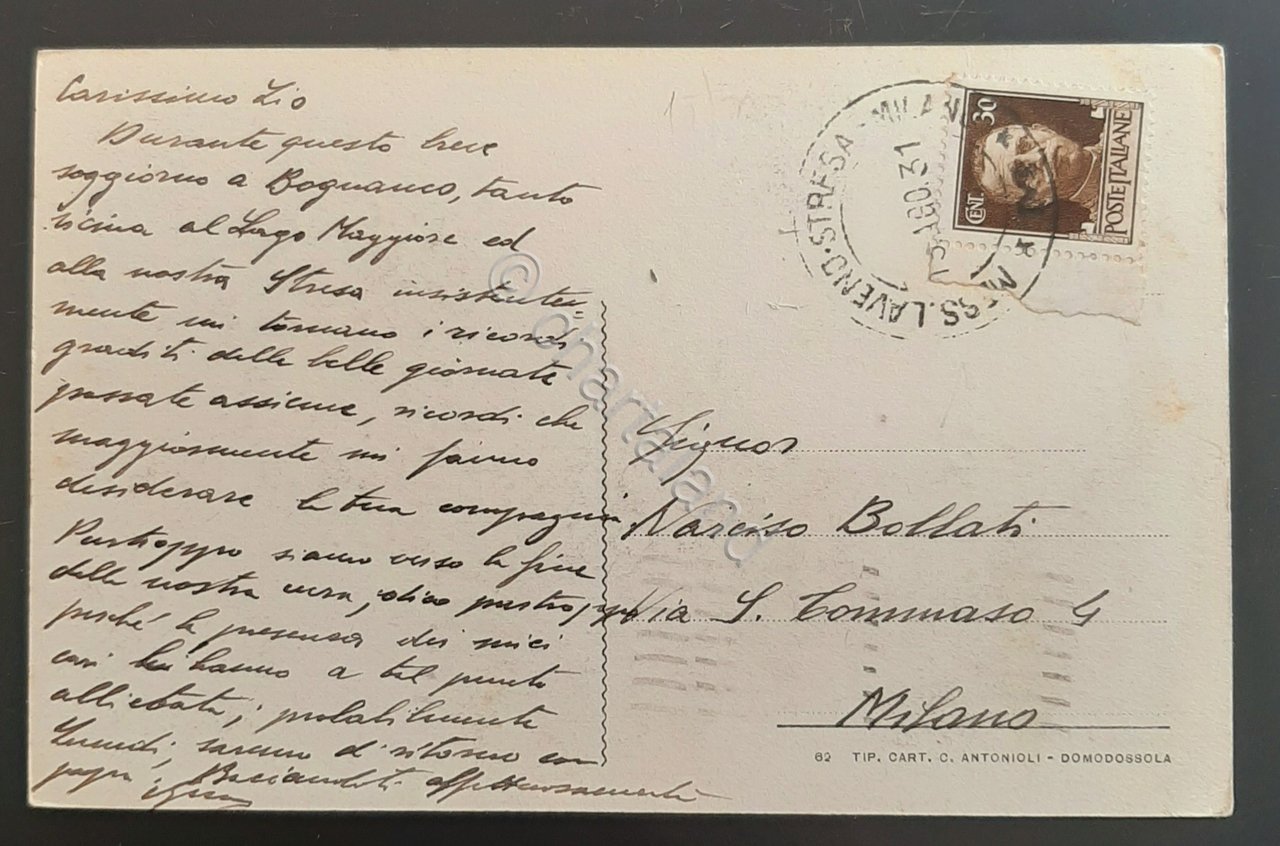 Carissimo Zio
Durante questo breve
soggiorno a Bognanco, tanto
vicina al Lago Maggiore ed
alla nostra Stresa insistente=
mente mi tornano i ricordi
graditi delle belle giornate
passate assieme, ricordi che
maggiormente mi fanno
desiderare la tua compagnia.
Purtroppo siamo verso la fine
della nostra cura, dico purtroppo
perché la presenza dei miei
cari mi hanno a tal punto
allietata; probabilmente
Lunedì, saremo di ritorno con
papà. Baciandoti affettuosamente
MESS. LAVENO-STRESA-MILANO
AGO.31
CENT 30
POSTE ITALIANE
Signor
Narciso Bollati
Via S. Tommaso 4
Milano
62 TIP. CART. C. ANTONIOLI - DOMODOSSOLA
© chartaland